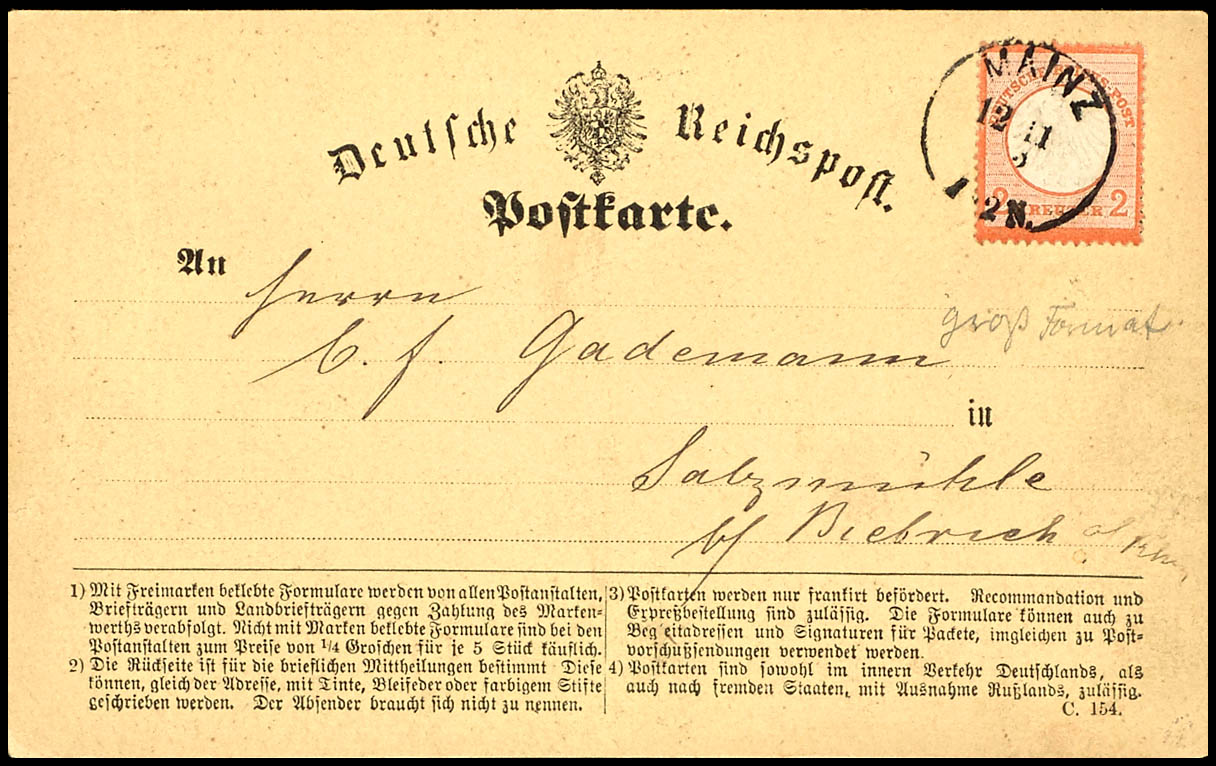 Deutsche Reichspost.
Postkarte.
MAINZ
12
11
1-2N.
DEUTSCHE REICHS-POST
2 KREUZER 2
An Herrn
C. F. Gademann
groß Format.
in
Salzmühle
b/ Biebrich a/ Rh.
1) Mit Freimarken beklebte Formulare werden von allen Postanstalten,
Briefträgern und Landbriefträgern gegen Zahlung des Marken-
werths verabfolgt. Nicht mit Marken beklebte Formulare sind bei den
Postanstalten zum Preise von 1/4 Groschen für je 5 Stück käuflich.
2) Die Rückseite ist für die brieflichen Mittheilungen bestimmt Diese
können, gleich der Adresse, mit Tinte, Bleifeder oder farbigem Stifte
geschrieben werden. Der Absender braucht sich nicht zu nennen.
3) Postkarten werden nur frankirt befördert. Recommandation und
Expreßbestellung sind zulässig. Die Formulare können auch zu
Beg eitadressen und Signaturen für Packete, imgleichen zu Post-
vorschußsendungen verwendet werden.
4) Postkarten sind sowohl im innern Verkehr Deutschlands, als
auch nach fremden Staaten, mit Ausnahme Rußlands, zulässig.
C. 154.